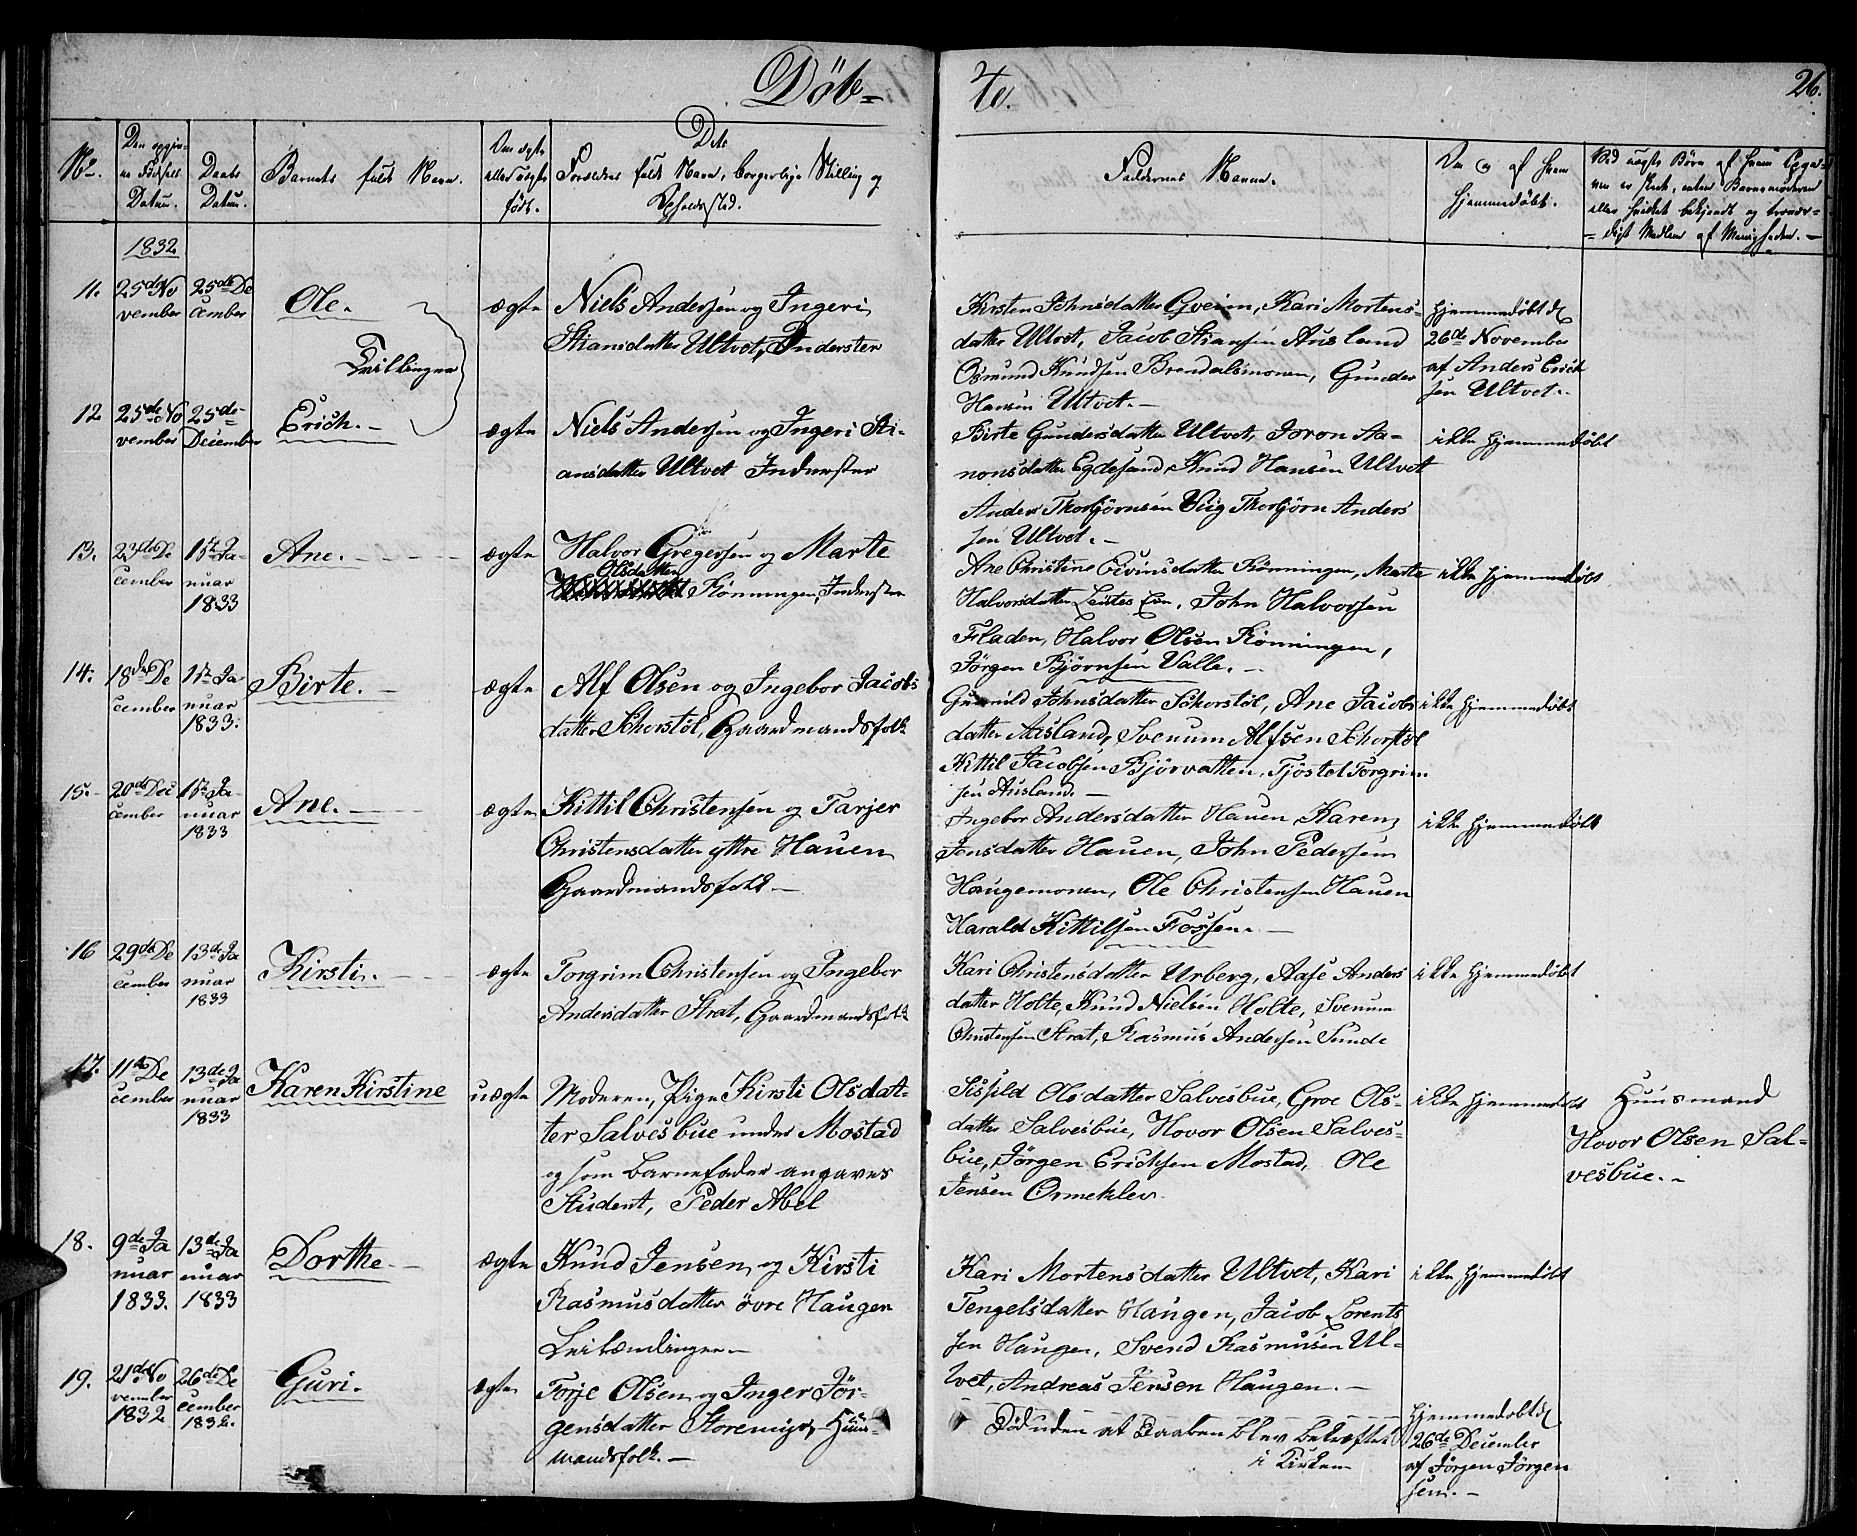 Döb-
te.
26.
No.
Den opgivne Fødsels Datum.
Daabs Datum.
Barnets fulde Navn.
Om ægte eller uægte født.
Dets Forældres fulde Navn, borgerlige Stilling og Opholdssted.
Faddernes Navne.
Om og af hvem hjemmedøbt.
Ved uægte Børn af hvem Opgaven er skeet, enten Barnemoderen eller hvilket bekjendt og troværdigt Medlem af Menigheden.
1832
11.
25de November
25de December
Ole.
Tvillinger
ægte
Niels Andersen og Ingeri
Stiansdatter Ultvet, Inderster
Kirsten Johnsdatter Gveim, Kari Mortens-
datter Ultvet, Jacob Stiansen Ausland
Osmund Knudsen Brendalsmonen, Gunder
Hansen Ultvet.
hjemmedøbt d.
26de November
af Anders Erich
sen Ultvet.
12
25de November
25de December
Erich.
ægte
Niels Andersen og Ingeri Sti-
ansdatter Ultvet Inderster
Birte Gundersdatter Ultvet, Joron Aa-
nonsdatter Egdesand, Knud Hansen Ultvet
Anders Thorbjørnsen Veig Thorbjørn Anders
sen Ultvet.
ikke hjemmedøbt
13.
23de December
1ste Januar 1833
Ane.
ægte
Halvor Gregersen og Marte
Olsdatter
Rønningen, Inderster
Ane Christine Eivinsdatter Rønningen, Marte
Halvorsdatter John Halvorsen
Fladen, Halvor Olsen Rønningen,
Jørgen Bjørnsen Valle.
ikke hjemmedøbt
14.
18de December
1ste Januar 1833.
Birte.
ægte
Alf Olsen og Ingebor Jacobs
datter Schorstøl, Gaardmandsfolk
Gunnild Johnsdatter Schorstøl, Ane Jacobs
datter Ausland, Svenum Alfsen Schorstøl
Kittil Jacobsen Bjørvatten, Tjøstel Torgrim
sen Ausland.
ikke hjemmedøbt
15.
20de December
1ste Januar 1833
Ane.
ægte
Kittil Christensen og Tarjer
Christensdatter yttre Hauen
Gaardmandsfolk.
Ingebor Andersdatter Hauen, Karen
Jensdatter Hauen, John Pedersen
Haugemonen, Ole Christensen Hauen
Harald Kittilsen Fossen.
ikke hjemmedøbt
16
29de December
13de Januar 1833
Kirsti.
ægte
Torgrim Christensen og Ingebor
Andersdatter Strat, Gaardmandsfolk
Kari Christensdatter Urberg, Aase Anders
datter Holte, Knud Nielsen Holte, Svenum
Christensen Strat, Rasmus Andersen Sunde
ikke hjemmedøbt
17.
11te December
13de Januar 1833
Karen Kirstine
uægte
Moderen, Pige Kirsti Olsdat-
ter Salvesbue under Mostad
og som Barnefader angaves
Student, Peder Abel
Sissild Olsdatter Salvesbue, Groe Ols-
datter Salvesbue, Hovor Olsen Salves-
bue, Jørgen Erichsen Mostad, Ole
Jensen Ormeklev.
ikke hjemmedøbt
Huusmand
Hovor Olsen Sal-
vesbue.
18.
9de Januar 1833.
13de Januar 1833
Dorthe
ægte
Knud Jensen og Kirsti
Rasmusdatter övre Haugen
Leilændinger
Kari Mortensdatter Ultvet, Kari
Tengelsdatter Haugen, Jacob Lorents
sen Haugen, Svend Rasmusen Ul-
tvet, Andreas Jensen Haugen.
ikke hjemmedøbt
19.
21de November 1832
26de December 1832.
Guri.
ægte
Torje Olsen og Inger Jör-
gensdatter Storemyr, Huus-
mandsfolk.
Död uden at Daaben blev bekræftet
i Kirken
hjemmedøbt d.
26de December
af Jörgen Jörgen
sen.